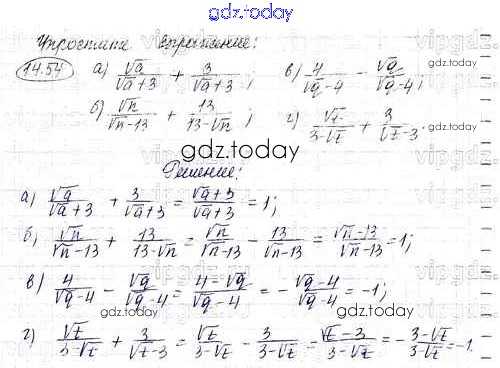 gdz.today
Упростите выражение:
14.54 а) √a/(√a+3) + 3/(√a+3); в) 4/(√q-4) - √q/(√q-4);
gdz.today
б) √n/(√n-13) + 13/(13-√n); г) √t/(3-√t) + 3/(√t-3).
gdz.today
Решение:
а) √a/(√a+3) + 3/(√a+3) = (√a+3)/(√a+3) = 1;
б) √n/(√n-13) + 13/(13-√n) = √n/(√n-13) - 13/(√n-13) = (√n-13)/(√n-13) = 1;
в) 4/(√q-4) - √q/(√q-4) = (4-√q)/(√q-4) = - (√q-4)/(√q-4) = -1;
gdz.today
г) √t/(3-√t) + 3/(√t-3) = √t/(3-√t) - 3/(3-√t) = (√t-3)/(3-√t) = - (3-√t)/(3-√t) = -1.
gdz.today